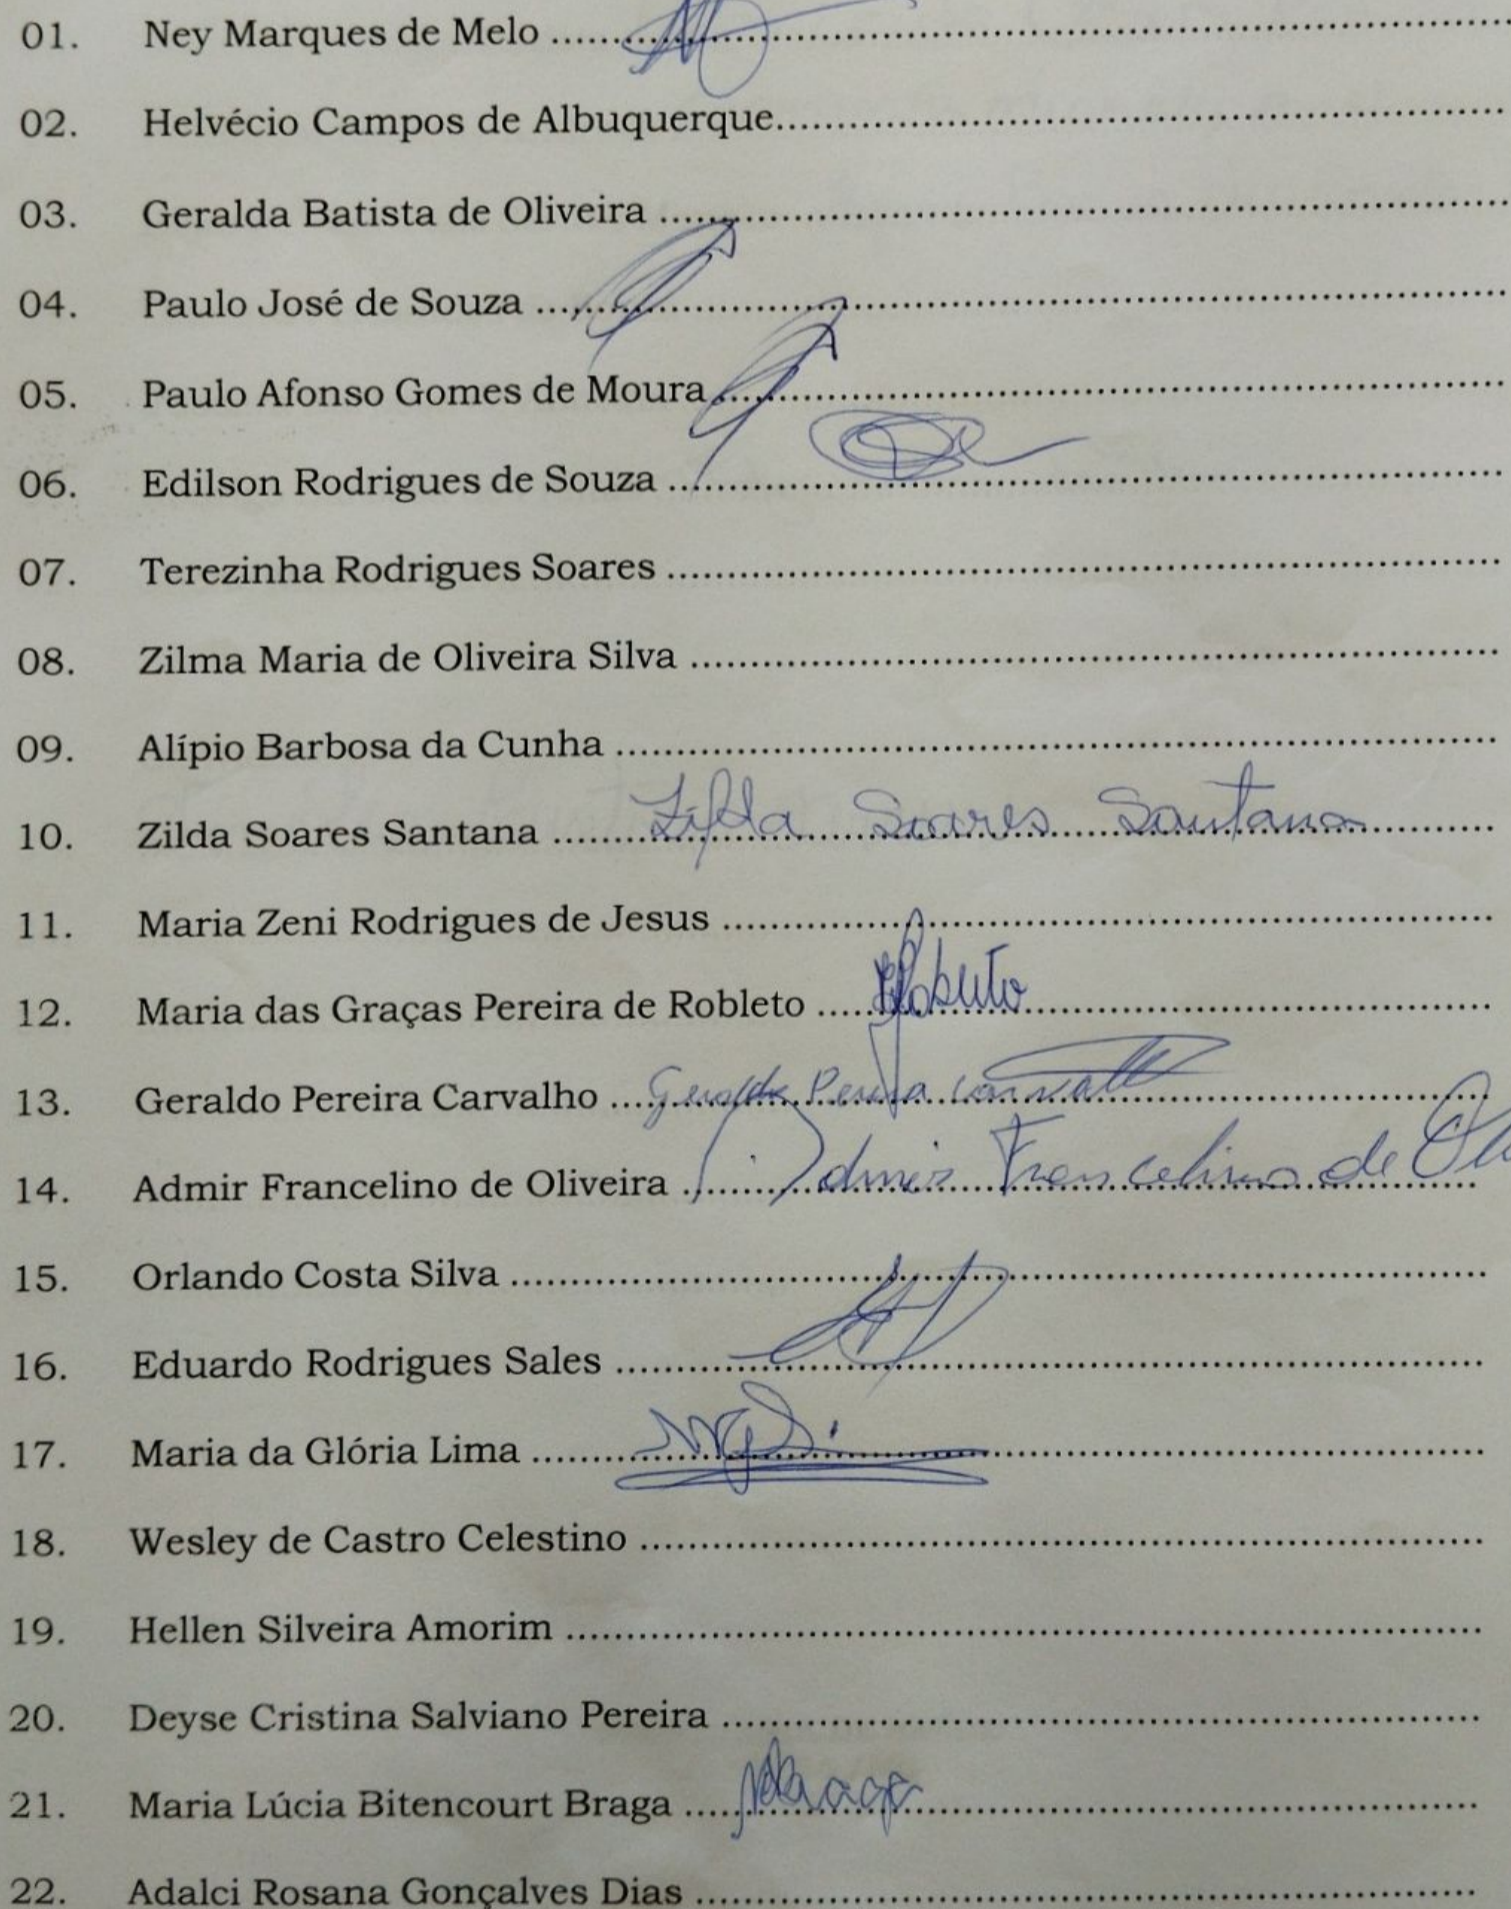 01. Ney Marques de Melo ................................
02. Helvécio Campos de Albuquerque................................
03. Geralda Batista de Oliveira ................................
04. Paulo José de Souza ................................
05. Paulo Afonso Gomes de Moura ................................
06. Edilson Rodrigues de Souza ................................
07. Terezinha Rodrigues Soares ................................
08. Zilma Maria de Oliveira Silva ................................
09. Alípio Barbosa da Cunha ................................
10. Zilda Soares Santana ........ Zilda Soares Santana
11. Maria Zeni Rodrigues de Jesus ................................
12. Maria das Graças Pereira de Robleto ..... Robleto
13. Geraldo Pereira Carvalho .... Geraldo Pereira Carvalho
14. Admir Francelino de Oliveira ........ Admir Francelino de Oli
15. Orlando Costa Silva ................................
16. Eduardo Rodrigues Sales ................................
17. Maria da Glória Lima ................................
18. Wesley de Castro Celestino ................................
19. Hellen Silveira Amorim ................................
20. Deyse Cristina Salviano Pereira ................................
21. Maria Lúcia Bitencourt Braga ..... Braga
22. Adalci Rosana Gonçalves Dias ................................